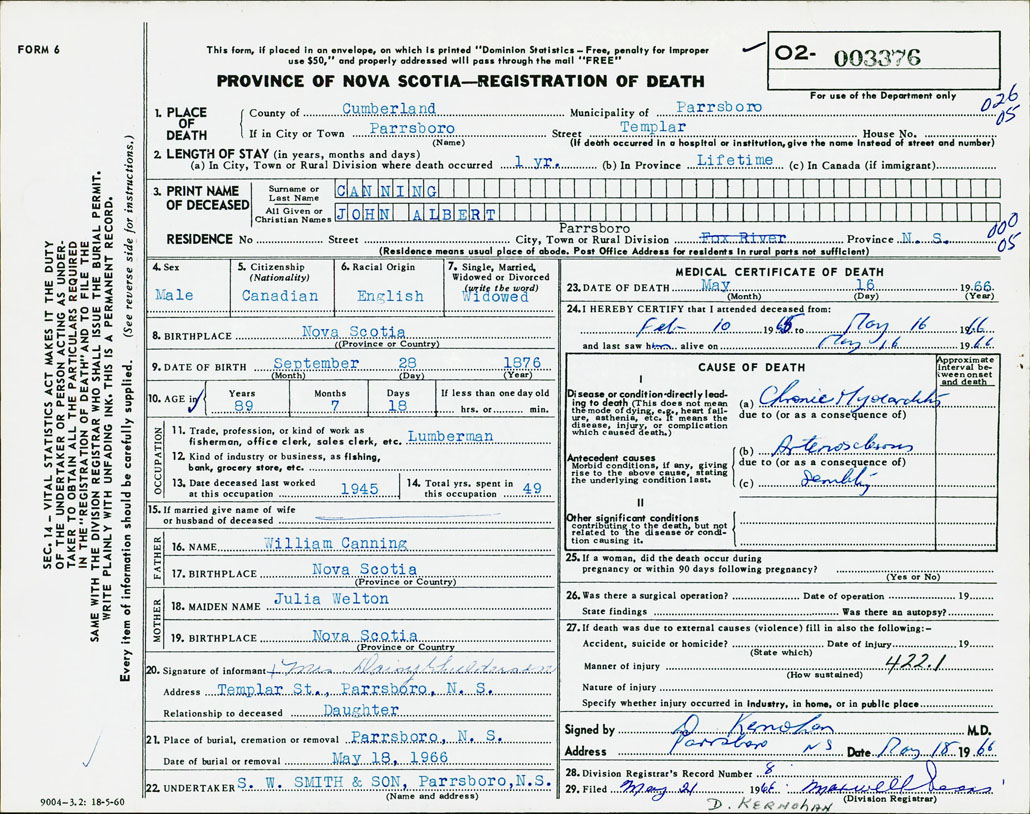 FORM 6
This form, if placed in an envelope, on which is printed "Dominion Statistics – Free, penalty for improper
use $50," and properly addressed will pass through the mail "FREE"
O2- 003376
PROVINCE OF NOVA SCOTIA—REGISTRATION OF DEATH
For use of the Department only
026
05
1. PLACE OF DEATH
County of Cumberland Municipality of Parrsboro
If in City or Town Parrsboro Street Templar House No.
(Name) (If death occurred in a hospital or institution, give the name instead of street and number)
2. LENGTH OF STAY (in years, months and days)
(a) In City, Town or Rural Division where death occurred 1 yr. (b) In Province Lifetime (c) In Canada (if immigrant)
3. PRINT NAME OF DECEASED
Surname or Last Name CANNING
All Given or Christian Names JOHN ALBERT
Parrsboro
RESIDENCE No Street City, Town or Rural Division Fox River Province N. S.
000
05
(Residence means usual place of abode. Post Office Address for residents in rural parts not sufficient)
4. Sex
Male
5. Citizenship
(Nationality)
Canadian
6. Racial Origin
English
7. Single, Married,
Widowed or Divorced
(write the word)
Widowed
8. BIRTHPLACE Nova Scotia
(Province or Country)
9. DATE OF BIRTH September 28 1876
(Month) (Day) (Year)
10. AGE in Years Months Days If less than one day old
89 7 18 hrs. or min.
OCCUPATION
11. Trade, profession, or kind of work as
fisherman, office clerk, sales clerk, etc. Lumberman
12. Kind of industry or business, as fishing,
bank, grocery store, etc.
13. Date deceased last worked
at this occupation 1945
14. Total yrs. spent in
this occupation 49
15. If married give name of wife
or husband of deceased
FATHER
16. NAME William Canning
17. BIRTHPLACE Nova Scotia
(Province or Country)
MOTHER
18. MAIDEN NAME Julia Welton
19. BIRTHPLACE Nova Scotia
(Province or Country)
20. Signature of informant Mrs Daisy
Address Templar St., Parrsboro, N. S.
Relationship to deceased Daughter
21. Place of burial, cremation or removal Parrsboro, N. S.
Date of burial or removal May 18, 1966
22. UNDERTAKER S. W. SMITH & SON, Parrsboro, N.S.
(Name and address)
MEDICAL CERTIFICATE OF DEATH
23. DATE OF DEATH May 16 1966
(Month) (Day) (Year)
24. I HEREBY CERTIFY that I attended deceased from:
Feb 10 1965 to May 16 1966
and last saw him alive on May 16 1966
CAUSE OF DEATH
Approximate
interval be-
tween onset
and death
I
Disease or condition directly lead-
ing to death (This does not mean
the mode of dying, e.g., heart fail-
ure, asthenia, etc. It means the
disease, injury, or complication
which caused death.)
(a) Chronic Myocarditis
due to (or as a consequence of)
Antecedent causes
Morbid conditions, if any, giving
rise to the above cause, stating
the underlying condition last.
(b) Arteriosclerosis
due to (or as a consequence of)
(c) Senility
II
Other significant conditions
contributing to the death, but not
related to the disease or condi-
tion causing it.
25. If a woman, did the death occur during
pregnancy or within 90 days following pregnancy?
(Yes or No)
26. Was there a surgical operation? Date of operation 19
State findings Was there an autopsy?
27. If death was due to external causes (violence) fill in also the following:–
Accident, suicide or homicide? Date of injury 19
(State which)
Manner of injury 422.1
(How sustained)
Nature of injury
Specify whether injury occurred in industry, in home, or in public place
Signed by D Kernohan M.D.
Address Parrsboro NS Date May 18 1966
28. Division Registrar's Record Number 8
29. Filed May 21 1966 Maxwell
(Division Registrar)
D. KERNOHAN
SEC. 14 – VITAL STATISTICS ACT MAKES IT THE DUTY
OF THE UNDERTAKER OR PERSON ACTING AS UNDER-
TAKER TO OBTAIN ALL THE PARTICULARS REQUIRED
IN THE "REGISTRATION OF DEATH" AND TO FILE THE
SAME WITH THE DIVISION REGISTRAR WHO SHALL ISSUE THE BURIAL PERMIT.
WRITE PLAINLY WITH UNFADING INK. THIS IS A PERMANENT RECORD.
Every item of information should be carefully supplied. (See reverse side for instructions.)
9004–3.2: 18-5-60